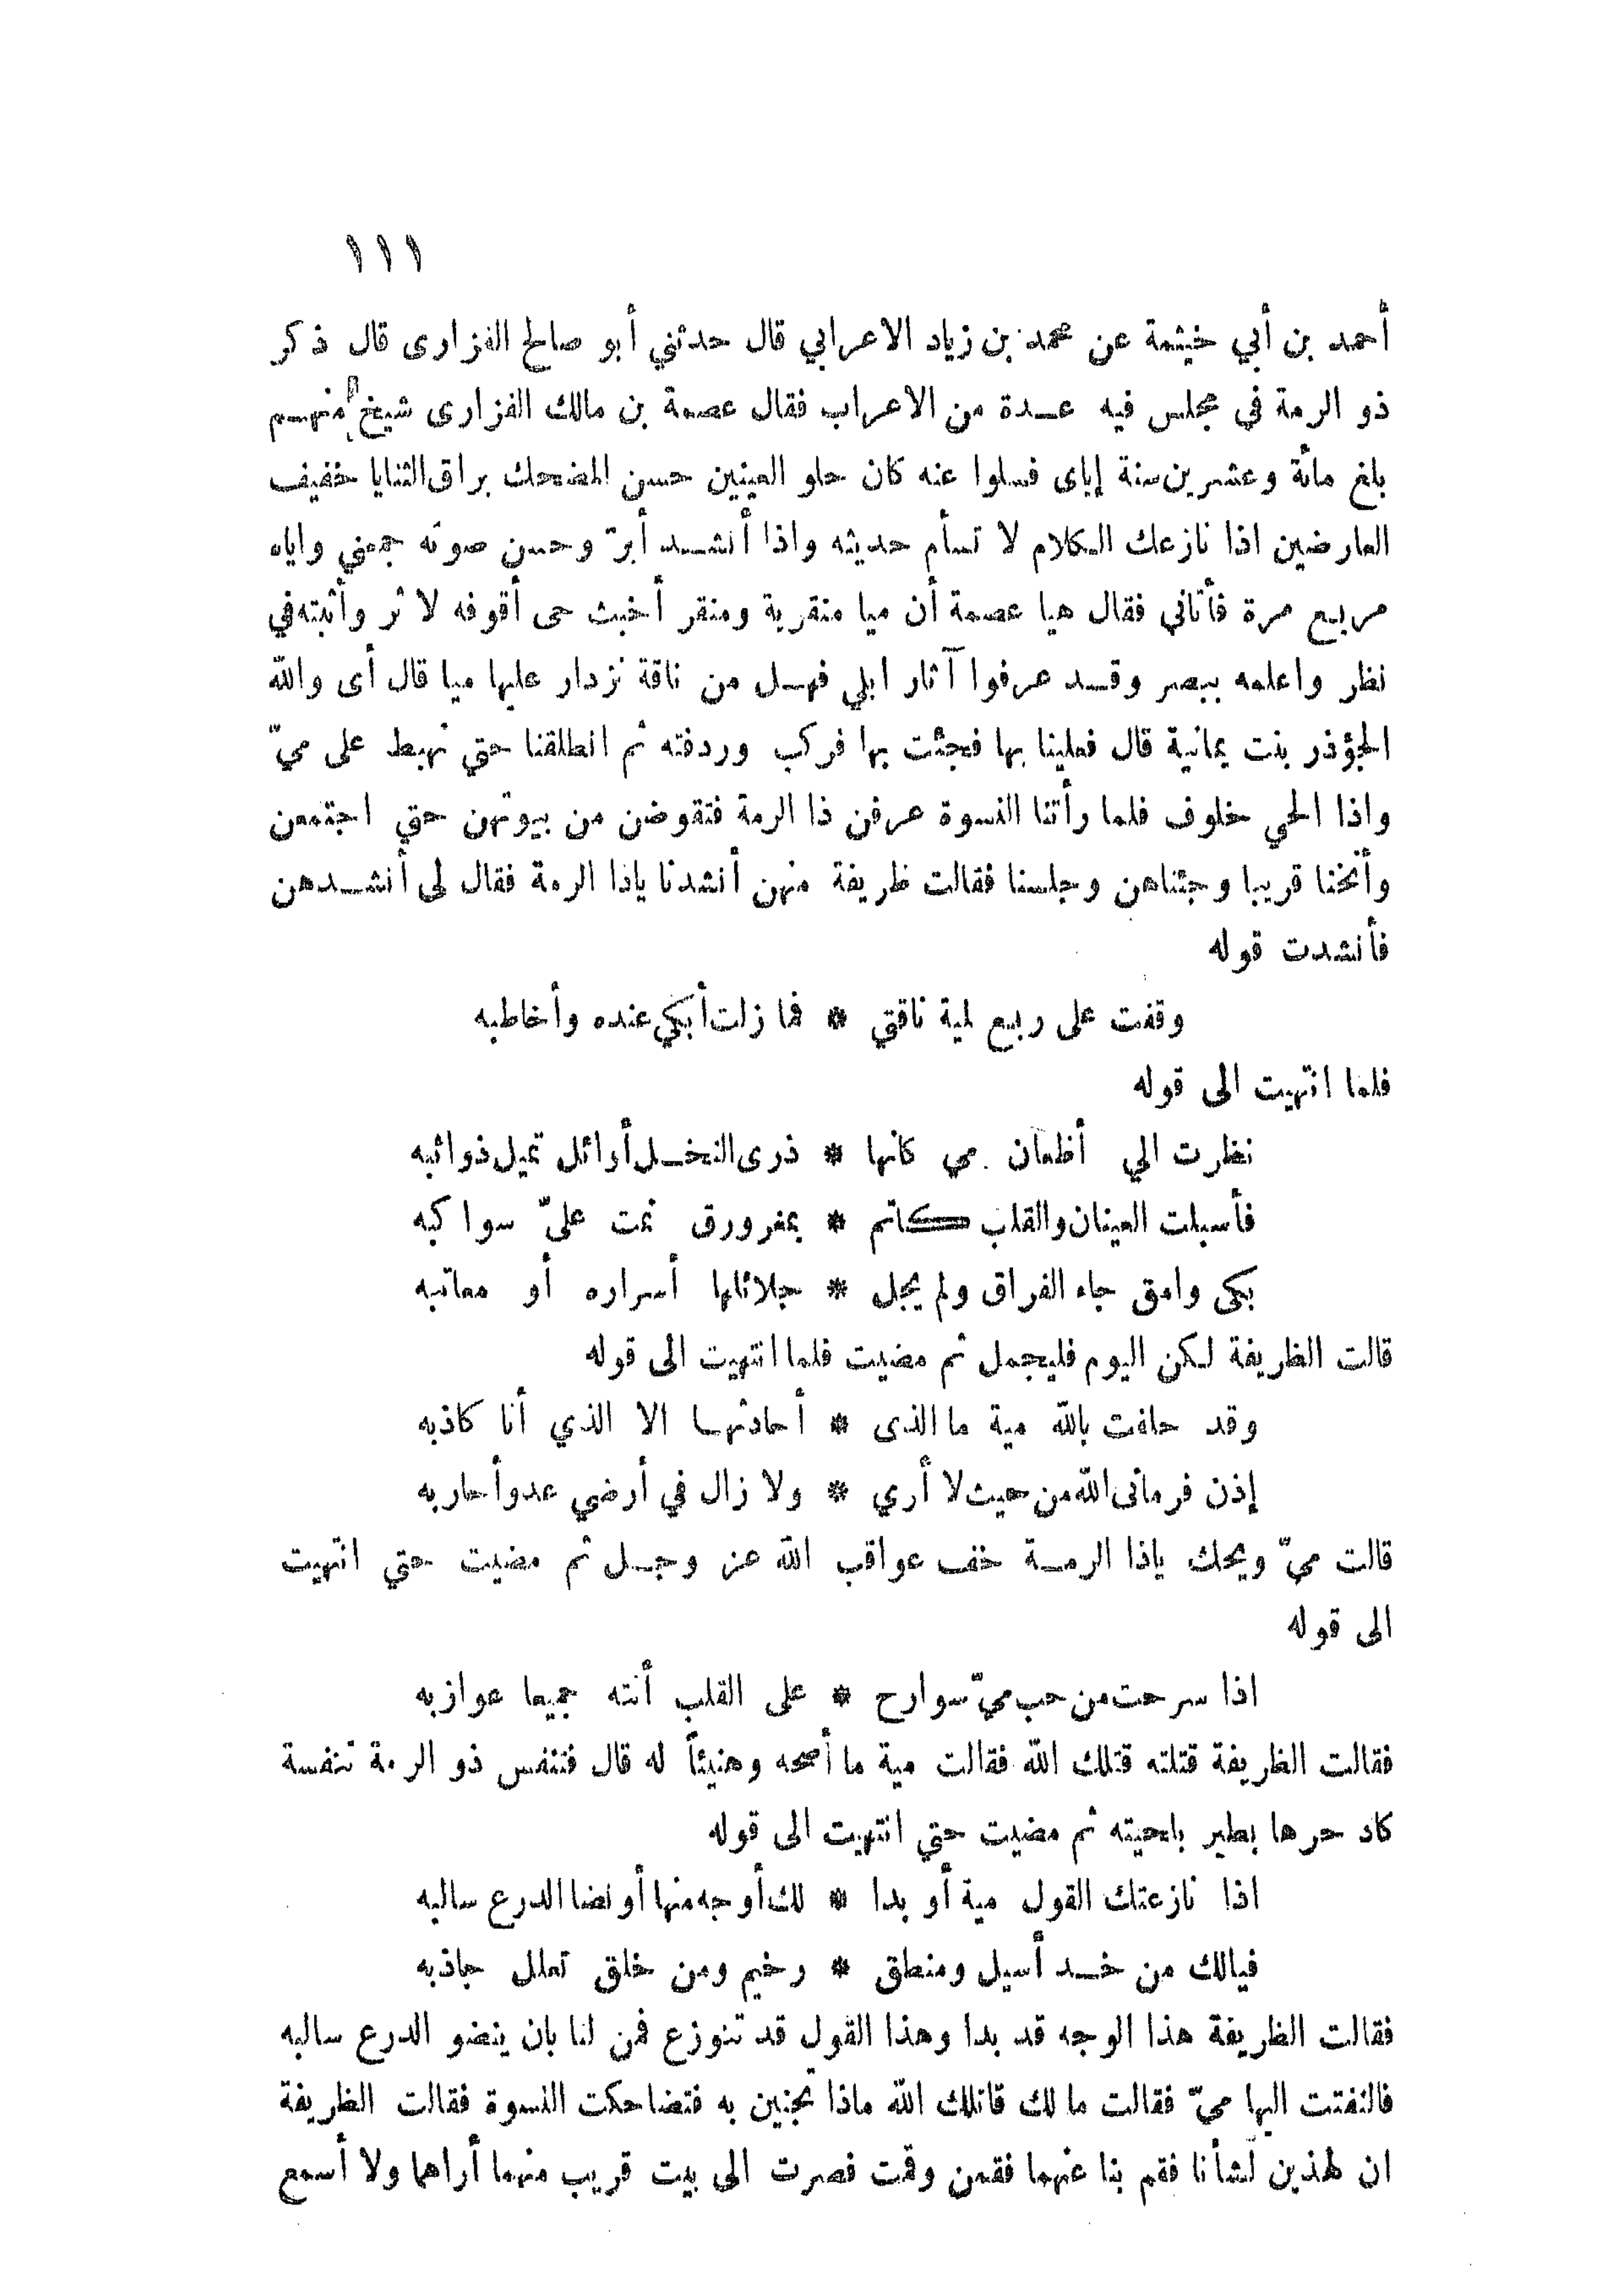 ١١١
أحمد بن أبي خيثمة عن محمد بن زياد الاعرابي قال حدثني أبو صالح الفزارى قال ذكر
ذو الرمة في مجلس فيه عدة من الاعراب فقال عصمة بن مالك الفزارى شيخ منهم
بلغ مائة وعشرين سنة إياى فسلوا عنه كان حلو العينين حسن المضحك براق الثنايا خفيف
العارضين اذا نازعك الكلام لا تسأم حديثه واذا أنشد أبرّ وحسن صوته جمعني واياه
مربع مرة فأتاني فقال هيا عصمة أن ميا منقرية ومنقر أخبث حى أقوفه لاثر وأثبته في
نظر واعلمه ببصر وقد عرفوا آثار ابلي فهل من ناقة نزدار عليها ميا قال أى والله
الجؤذر بنت يمانية قال فعلينا بها فجئت بها فركب وردفته ثم انطلقنا حتي نهبط على ميّ
واذا الحي خلوف فلما رأتنا النسوة عرفن ذا الرمة فتقوضن من بيوتهن حتي اجتمعن
وأنخنا قريبا وجئناهن وجلسنا فقالت ظريفة منهن أنشدنا ياذا الرمة فقال لى أنشدهن
فأنشدت قوله
وقفت على ربيع لمية ناقتي * فما زلت أبكي عنده وأخاطبه
فلما انتهيت الى قوله
نظرت الي أظعان مي كانها * ذرى النخل أوائل تميل ذوائبه
فأسبلت العينان والقلب كاتم * بمغرورق نمت علىّ سواكبه
بكى وامق جاء الفراق ولم يجل * جلائلها أسراره أو معاتبه
قالت الظريفة لكن اليوم فليجمل ثم مضيت فلما انتهيت الى قوله
وقد حلفت بالله مية ما الذى * أحادثها الا الذي أنا كاذبه
إذن فرمانى الله من حيث لا أري * ولا زال في أرضي عدو أحاربه
قالت ميّ ويحك ياذا الرمة خف عواقب الله عز وجل ثم مضيت حتي انتهيت
الى قوله
اذا سرحت من حب ميّ سوارح * على القلب أتته جميعا عوازبه
فقالت الظريفة قتلته قتلك الله فقالت مية ما أصحه وهنيئاً له قال فتنفس ذو الرمة تنفسة
كاد حرها يطير بلحيته ثم مضيت حتي انتهيت الى قوله
اذا نازعتك القول مية أو بدا * لك أوجه منها أو نضا الدرع سالبه
فيالك من خد أسيل ومنطق * رخيم ومن خلق تعلل جاذبه
فقالت الظريفة هذا الوجه قد بدا وهذا القول قد تنوزع فمن لنا بان ينضو الدرع سالبه
فالتفتت اليها ميّ فقالت ما لك قاتلك الله ماذا تجنين به فتضاحكت النسوة فقالت الظريفة
ان لهذين لشأنا فقم بنا عنهما فقمن وقمت فصرت الى بيت قريب منهما أراهما ولا أسمع